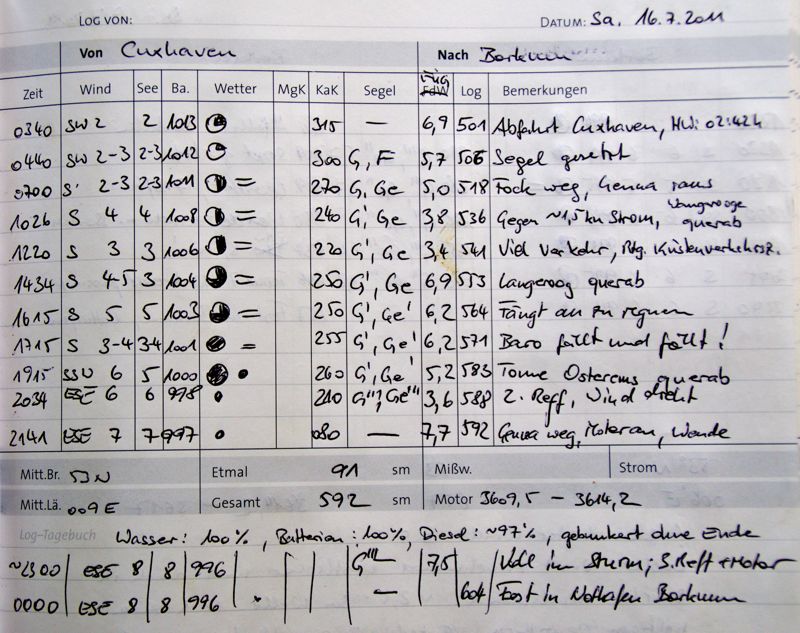 LOG VON: DATUM: Sa, 16.7.2011
Von Cuxhaven Nach Borkum
Zeit Wind See Ba. Wetter MgK KaK Segel FdW FüG Log Bemerkungen
0340 SW 2 2 1013 315 — 6,9 501 Abfahrt Cuxhaven, HW: 02:424
0440 SW 2-3 2-3 1012 300 G, F 5,7 506 Segel gesetzt
0700 S' 2-3 2-3 1011 = 270 G, Ge 5,0 518 Fock weg, Genua raus
1026 S 4 4 1008 = 240 G', Ge 3,8 536 Gegen ~1,5 kn Strom, Wangerooge querab
1220 S 3 3 1006 = 220 G', Ge 3,4 541 Viel Verkehr, Rtg. Küstenverkehrsz.
1434 S 4-5 3 1004 = 250 G', Ge 6,9 553 Langeoog querab
1615 S 5 5 1003 = 250 G', Ge' 6,2 564 Fängt an zu regnen
1715 S 3-4 3-4 1001 = 255 G', Ge' 6,2 571 Baro fällt und fällt!
1915 SSW 6 5 1000 • 260 G', Ge' 5,2 583 Tonne Osterems querab
2034 ESE 6 6 998 • 210 G'', Ge''' 3,6 588 2. Reff, Wind dreht
2141 ESE 7 7 997 • 080 — 7,7 592 Genua weg, Motor an, Wende
Mitt.Br. 53N Etmal 91 sm Mißw. Strom
Mitt.Lä. 009E Gesamt 592 sm Motor 3609,5 – 3614,2
Log-Tagebuch Wasser: 100%, Batterien: 100%, Diesel: ~97%, gebunkert ohne Ende
~2300 ESE 8 8 996 G''' 7,5 Voll im Sturm; 3. Reff + Motor
0000 ESE 8 8 996 • — 604 Fest in Nothafen Borkum